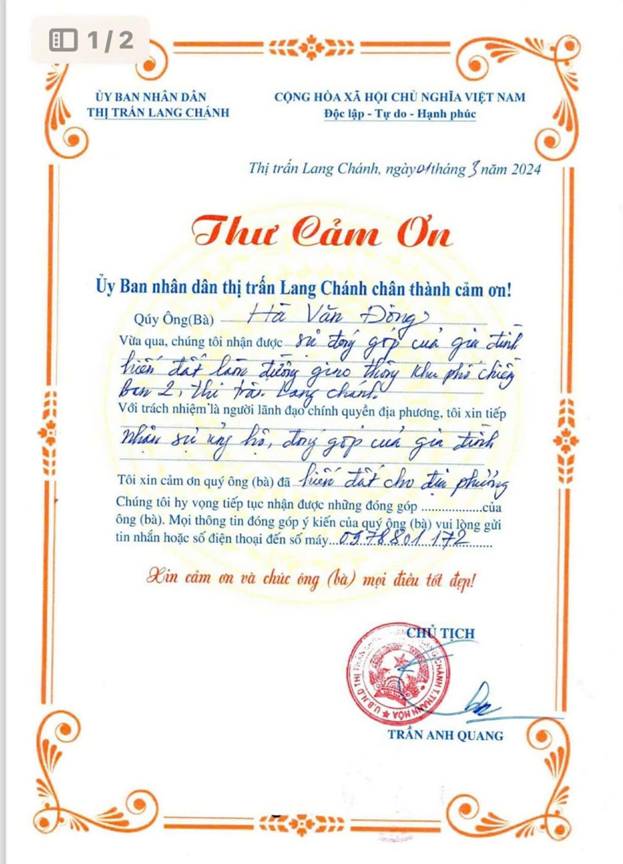 1/2
ỦY BAN NHÂN DÂN
THỊ TRẤN LANG CHÁNH
CỘNG HÒA XÃ HỘI CHỦ NGHĨA VIỆT NAM
Độc lập - Tự do - Hạnh phúc
Thị trấn Lang Chánh, ngày 01 tháng 3 năm 2024
Thư Cảm Ơn
Ủy Ban nhân dân thị trấn Lang Chánh chân thành cảm ơn!
Qúy Ông(Bà) Hà Văn Đông
Vừa qua, chúng tôi nhận được sự đóng góp của gia đình
hiến đất làm đường giao thông khu phố chiềng
ban 2, thị trấn Lang chánh
Với trách nhiệm là người lãnh đạo chính quyền địa phương, tôi xin tiếp
nhận sự ủng hộ, đóng góp của gia đình
Tôi xin cảm ơn quý ông (bà) đã hiến đất cho địa phương
Chúng tôi hy vọng tiếp tục nhận được những đóng góp ..................của
ông (bà). Mọi thông tin đóng góp ý kiến của quý ông (bà) vui lòng gửi
tin nhắn hoặc số điện thoại đến số máy...0978801172
Xin cảm ơn và chúc ông (bà) mọi điều tốt đẹp!
CHỦ TỊCH
TRẦN ANH QUANG